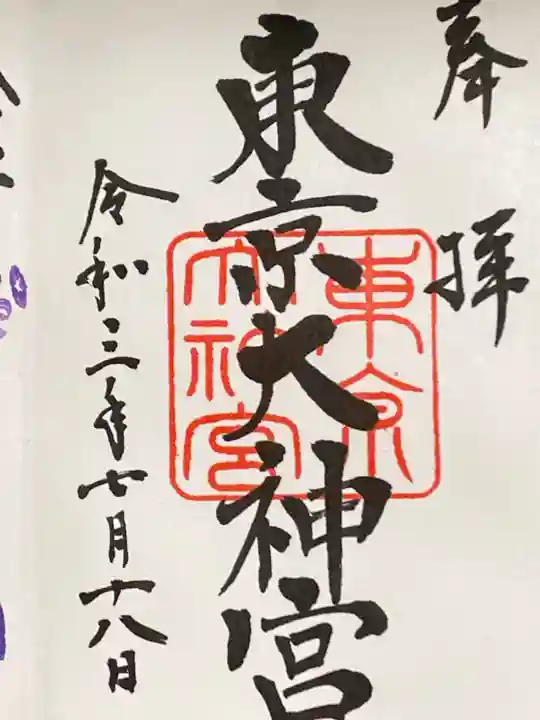 奉拝
東京大神宮
東京大神宮
令和三年七月十八日